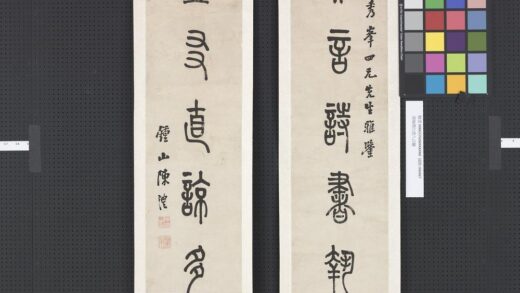 秀峯四兄先生雅鑒
言詩書執
友直諒多
鍾山陳澧